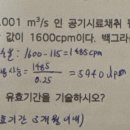 .001 m³/s 인 공기시료채취 펌
값이 1600cpm이다. 백그라
율: 1600-115=1485cpm
1485
0.25
= 5940 dpm
유효기간을 기술하시오?
기간 3개월이내)